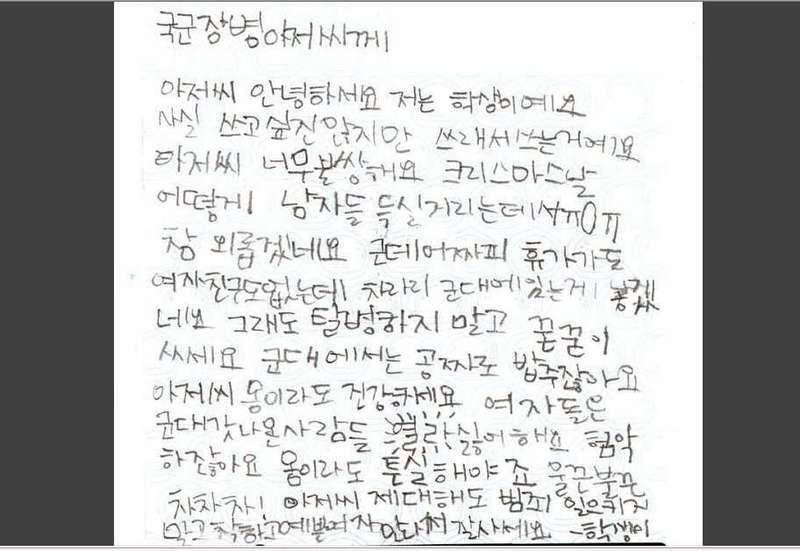 국군장병아저씨께
아저씨 안녕하세요 저는 학생이예요
사실 쓰고싶진않지만 쓰래서쓰는거여요
아저씨 너무불쌍해요 크리스마스날
어떻게 남자들 득실거리는데서ㅠ0ㅠ
참 외롭겠네요 군데어짜피 휴가가도
여자친구도없는데 차라리 군대에있는게 좋겠
네요 그래도 탈병하지 말고 꾿꾿이
싸세요 군대에서는 공짜로 밥주잖아요
아저씨 몽이라도 건강하세요 여자들은
군대갓나온사람들 별락싫어해요 험악
하잖아요 몽이라도 튼실해야죠 울끈불끈
차차차! 아저씨 제대해도 범죄 일으키지
말고 착하고예쁜여자 만나서 잘사세요 -학생이